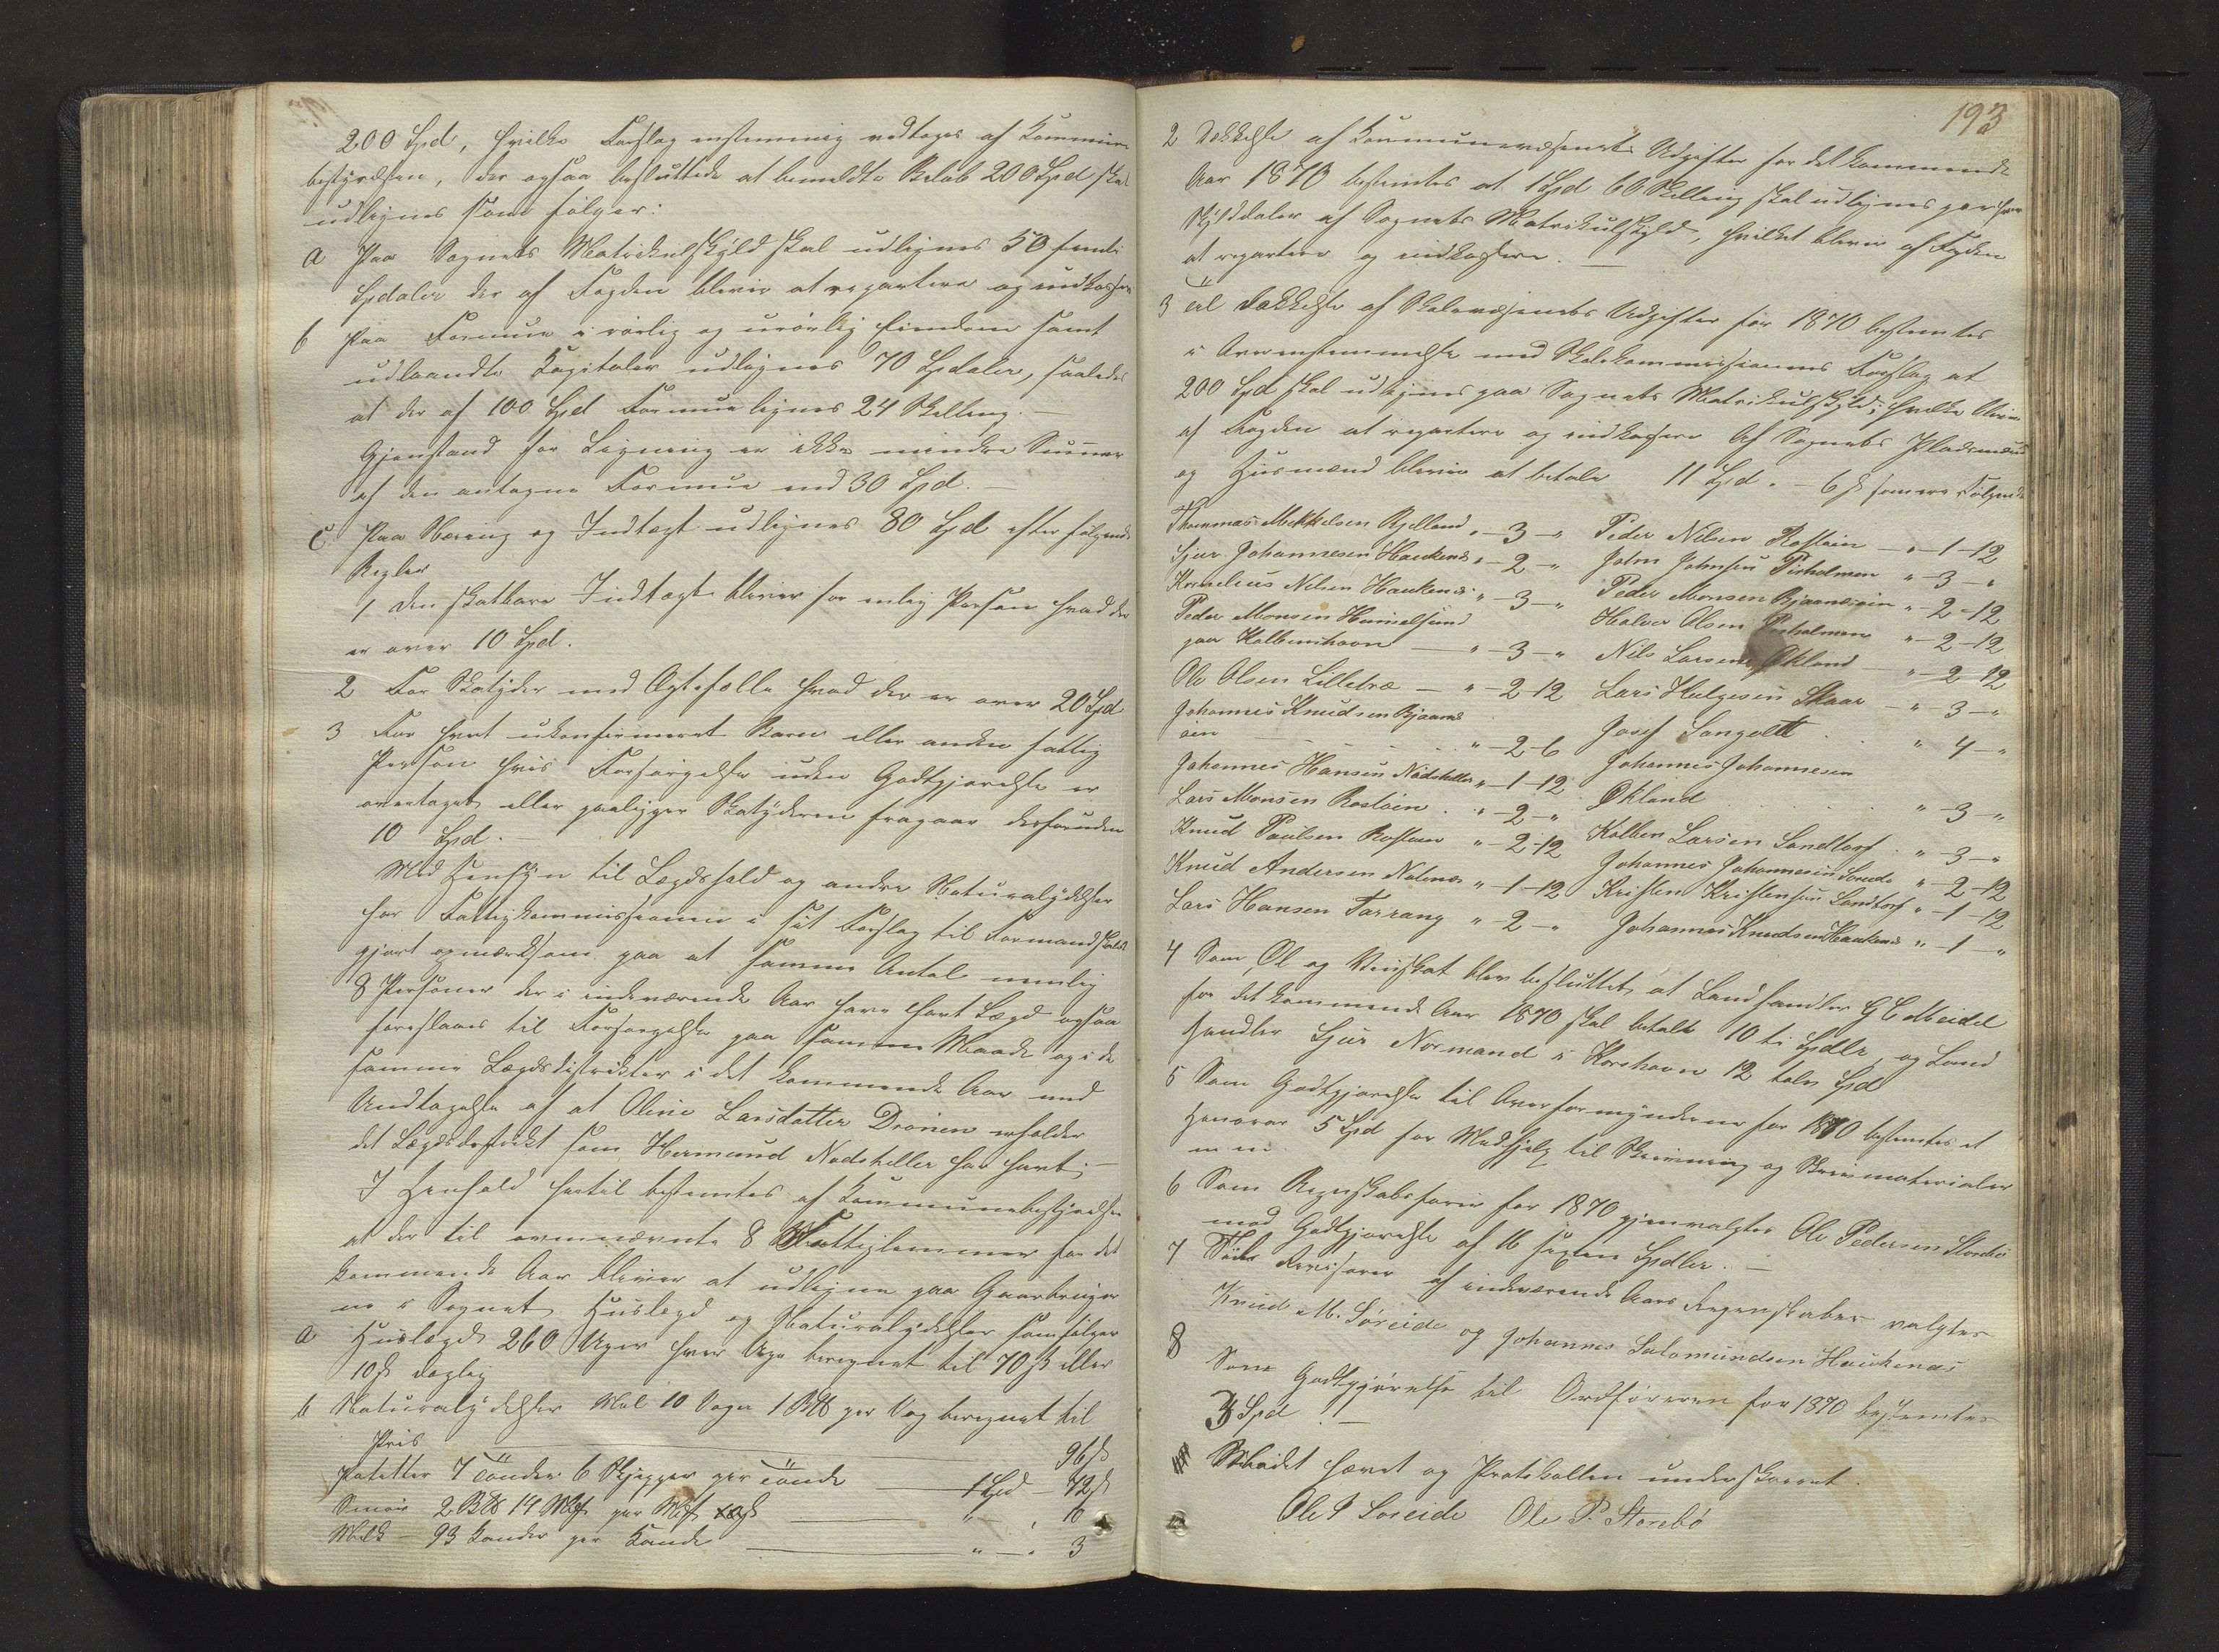 200 Spd, hvilke Forslag enstemmig vedtoges af Kommune-
bestyrelsen, der ogsaa besluttede at bemeldte Beløb 200 Spd skal
udlignes som følger:
a Paa Sognets Matrikulskyld skal udlignes 50 femti
Spdaler der af Fogden bliver at repartere og indkassere
b Paa Formue i rørlig og urørlig Eiendom samt
udlaante Kapitaler udlignes 70 Spdaler, saaledes
at der af 100 Spd Formue lignes 24 Skilling.
Gjenstand for Ligning er ikke mindre Summer
af den antagne Formue end 30 Spd. —
C Paa Næring og Indtægt udlignes 80 Spd efter følgende
Regler
1 Den skatbare Indtægt bliver for enlig Person hvad der
er over 10 Spd.
2 For Skatyder med Ægtefælle hvad der er over 20 Spd
3 For hvert ukonfirmeret Barn eller anden fattig
Person hvis Forsørgelse uden Godtgjørelse er
overtaget eller paaligger Skatyderen fragaar desforuden
10 Spd. —
Med Hensyn til Lægdshold og andre Naturalydelser
har Fattigkommissionen i sit Forslag til Formandskabet
gjort opmærksom paa at samme Antal nemlig
8 Personer der i indeværende Aar have havt Lægd ogsaa
foreslaaes til Forsørgelse paa samme Maade og i de
samme Lægdsdistrikter i det kommende Aar med
Undtagelse af at Oline Larsdatter Drönen erholder
det Lægdsdistrikt som Hermund Nodsteller har havt; —
I Henhold hertil bestemtes af Kommunebestyrelsen
at der til ovennævnte 8 Fattiglemmer for det
kommende Aar bliver at udligne paa Gaardbruger
ne i Sognet Huslægd og Naturalydelser som følger
a Huslægd 260 Uger hver Uge beregnet til 70 ß eller
10 ß daglig
b Naturalydelser Mel 10 Voger 1 B℔ per Vog beregnet til
Pris 96 ß
Potetter 7 Tönder 6 Skjepper per Tönde 1 Spd — 72 ß
Smør 2 B℔ 14 Mrk per Mrk " — " 10
Melk 93 Kander per Kande " — " 3
193
2 Dækkelse af Kommunevæsenets Udgifter for det kommende
Aar 1870 bestemtes at 1 Spd 60 Skilling skal udlignes per hver
Skylddaler af Sognets Matrikulskyld, hvilket bliver af Fogden
at repartere og indkassere. —
3 Til Dækkelse af Skolevæsenets Udgifter for 1870 bestemtes
i Overensstemmelse med Skolekommissionens Forslag at
200 Spd skal udlignes paa Sognets Matrikulskyld; hvilke bliver
af Fogden at repartere og indkassere Af Sognets Pladsmænd
og Husmænd bliver at betale 11 Spd. — 6 ß som ere Følgende
Thommas Mikkelsen Rylland " — 3 — " Peder Nilsen Rostøen — " — 1 — 12
Sjur Johannesen Haukenes " — 2 — " John Johnsen Tirholmen " — 3 — "
Kornelius Nilsen Haukenes " — 3 — " Peder Monsen Bjaanesöen " — 2 — 12
Peder Monsen Huinelsund Halvor Olsen Porholmen " — 2 — 12
paa Kalbeinhavn — " — 3 — " Nils Larsen Økland — " — 2 — 12
Ole Olsen Lilletræ — " — 2 12 Lars Helgesen Skaar — " — 3 — "
Johannes Knudsen Bjaanes
öen " — 2 — 6 Josef Sangolt " 4 — "
Johannes Hansen Nodsteller " — 1 — 12 Johannes Johannesen
Lars Monsen Rostöen " — 2 — " Økland " — 3 — "
Knud Paulsen Rostöen " — 2 — 12 Kolben Larsen Sandtorf " — 3 — "
Knud Andersen Nolenes " — 1 — 12 Johannes Johannesen Soreide " — 2 — 12
Lars Hansen Tarrang " — 2 — " Kristen Kristensen Sandtorf " — 1 — 12
Johannes Knudsen Haukenes " — 1 — "
4 Som Øl og Vinskat blev besluttet at Landhandler G C Meidel
for det kommende Aar 1870 skal betale 10 ti Spdlr, og Land
handler Sjur Normand i Korshavn 12 tolv Spd
5 Som Godtgjørelse til Overformynderne for 1870 bestemtes et
Honorar 5 Spd for Medhjelp til Skrivning og Skrivmaterialer
m m.
6 Som Regnskabsfører for 1870 gjenvalgtes Ole Pedersen Storebø
mod Godtgjørelse af 16 sexten Spdlr. —
7 Til Revisorer af indeværende Aars Regnskaber valgtes
Knud M. Søreide og Johannes Salomundsen Haukenes
8 Som Godtgjørelse til Ordføreren for 1870 bestemtes
3 Spd. —
Mødet hævet og Protokollen underskrevet.
Ole J Soreide Ole P. Storebö